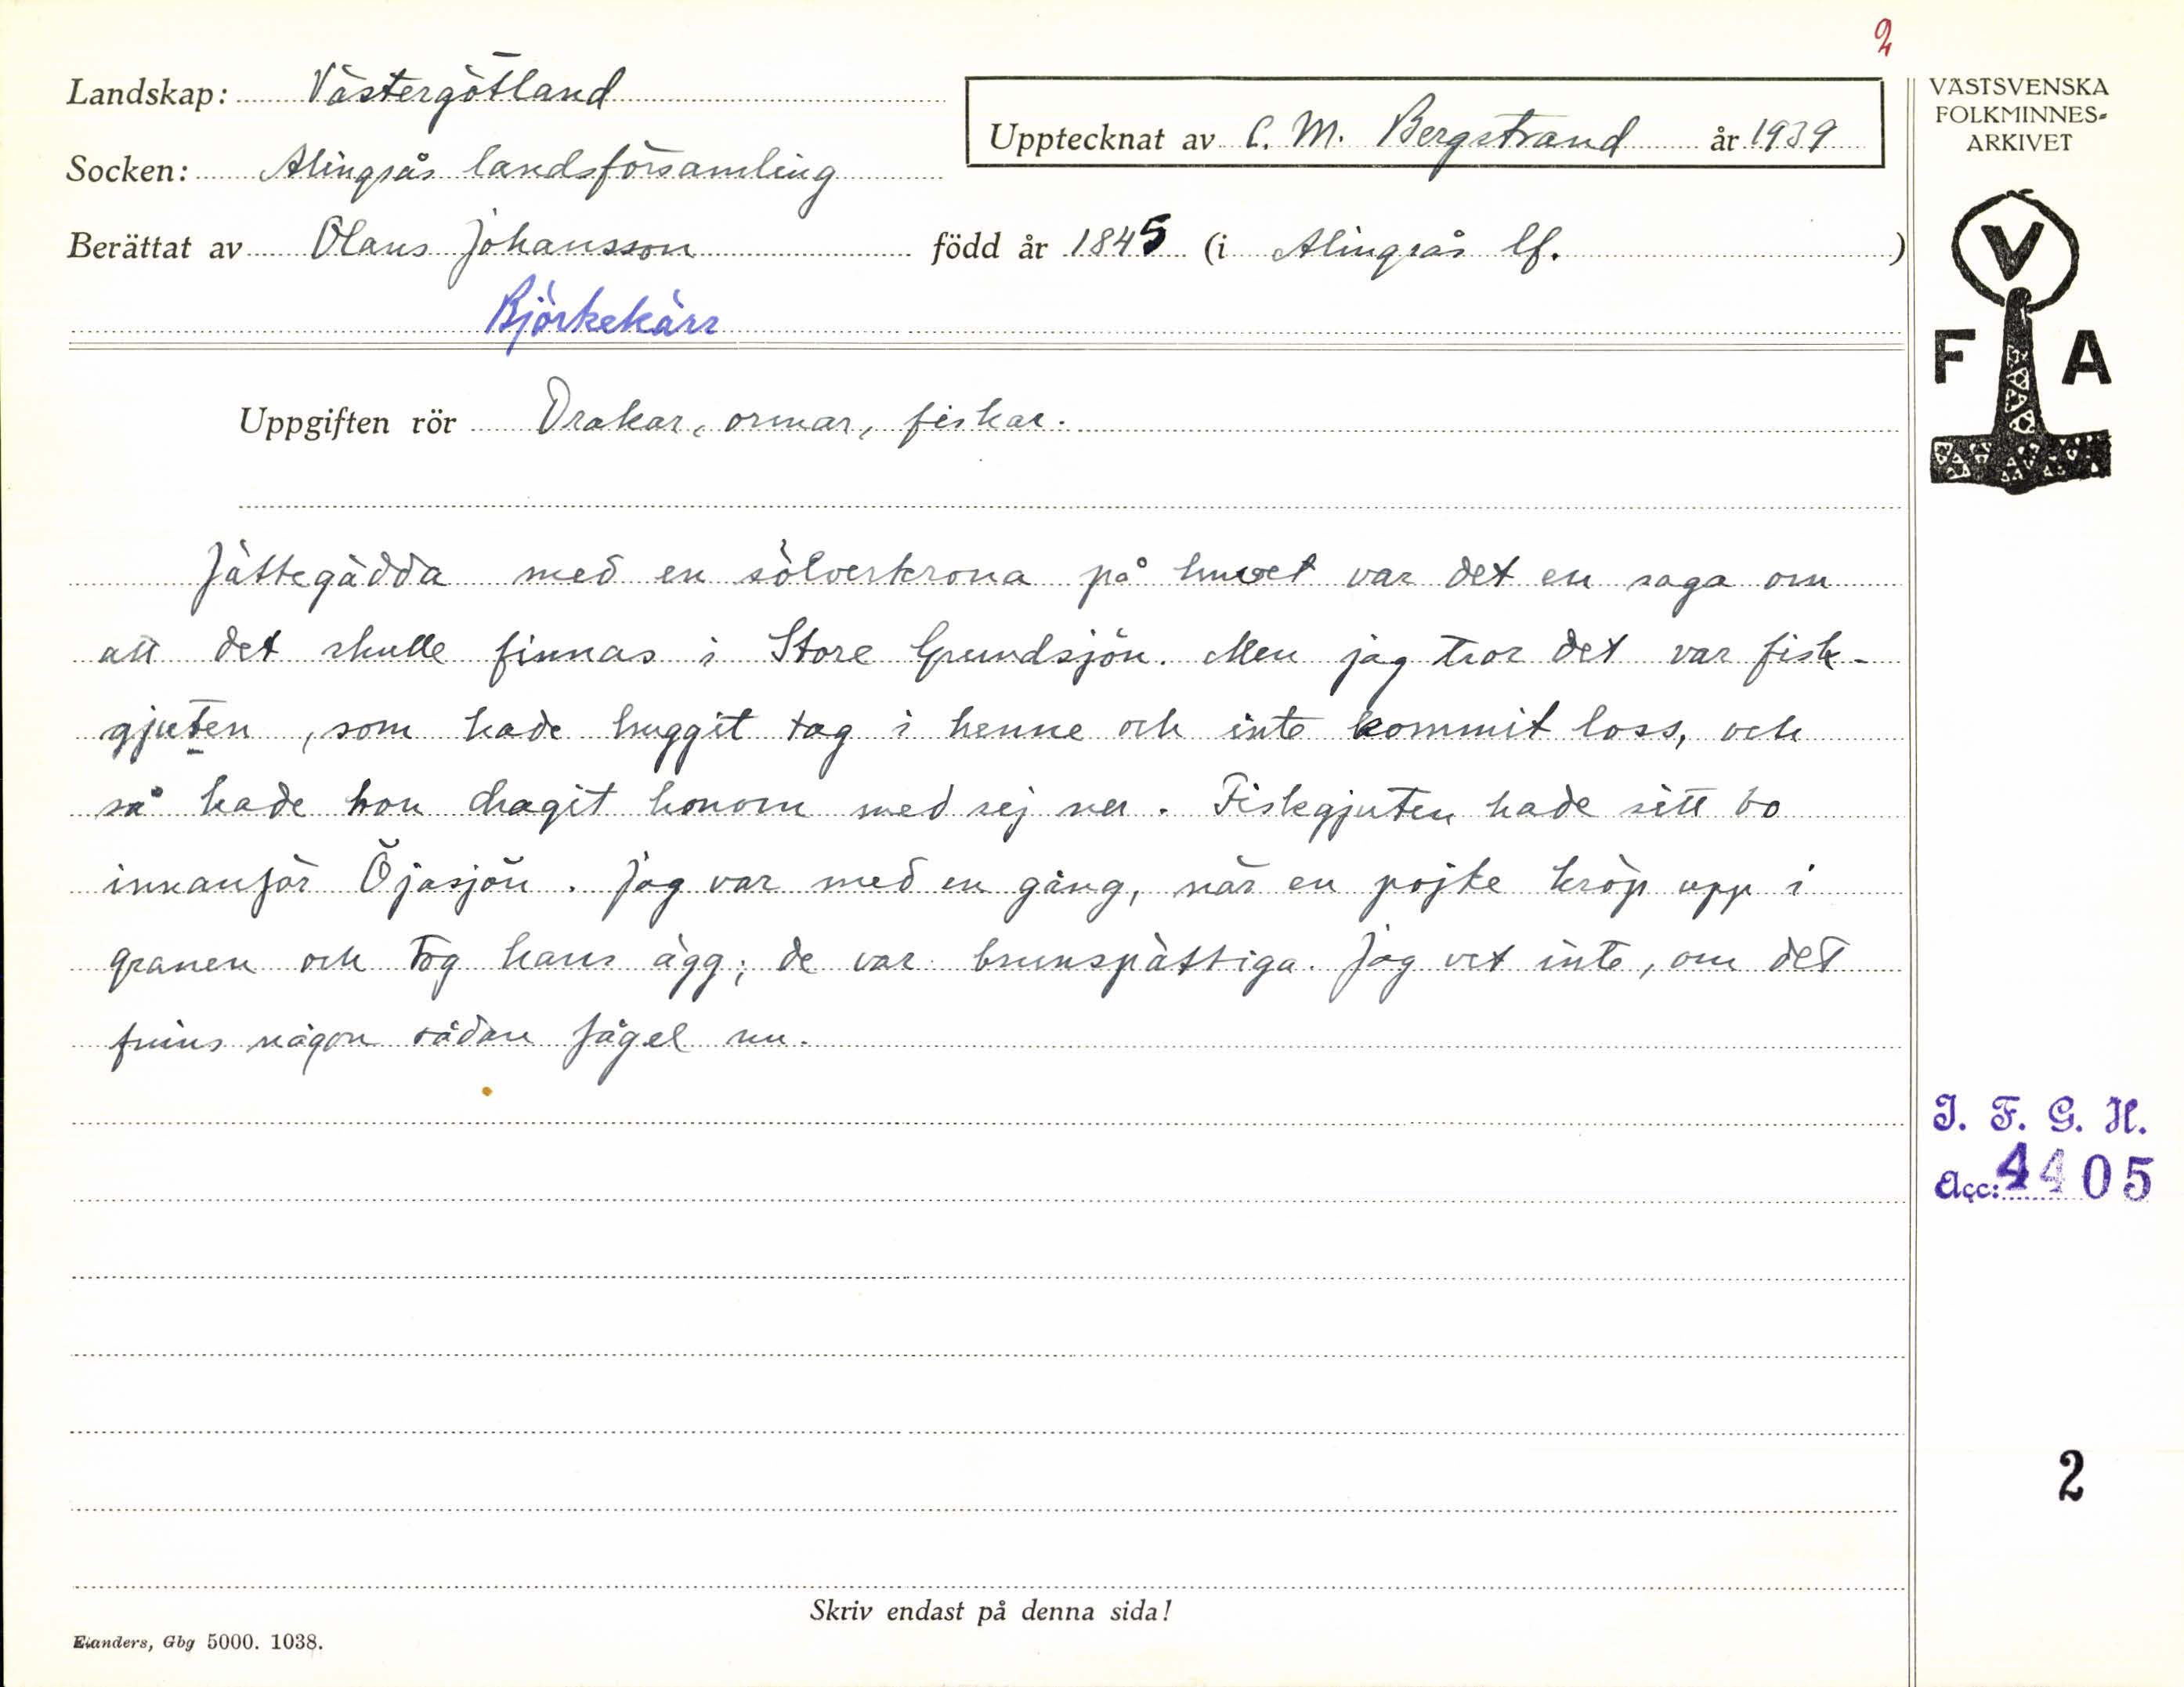 2
Landskap: Västergötland
Upptecknat av C. M. Bergstrand år 1939
Socken: Alingsås landsförsamling
Berättat av Olaus Johansson född år 1845 (i Alingsås lf.)
Björkekärr
Uppgiften rör Drakar, ormar, fiskar.
Jättegädda med en sölverkrona på huvet var det en saga om
att det skulle finnas i Store Grundsjön. Men jag tror det var fisk-
gjuten, som hade huggit tag i henne och inte kommit loss, och
så hade hon dragit honom med sej ner. Fiskgjuten hade sitt bo
innanför Öjasjön. Jag var med en gång, när en pojke kröp upp i
granen och tog hans ägg; de var brunspättiga. Jag vet inte, om det
finns någon sådan fågel nu.
Skriv endast på denna sida!
Elanders, Gbg 5000. 1038.
VÄSTSVENSKA
FOLKMINNES-
ARKIVET
V
F A
I. F. G. H.
Acc: 4405
2